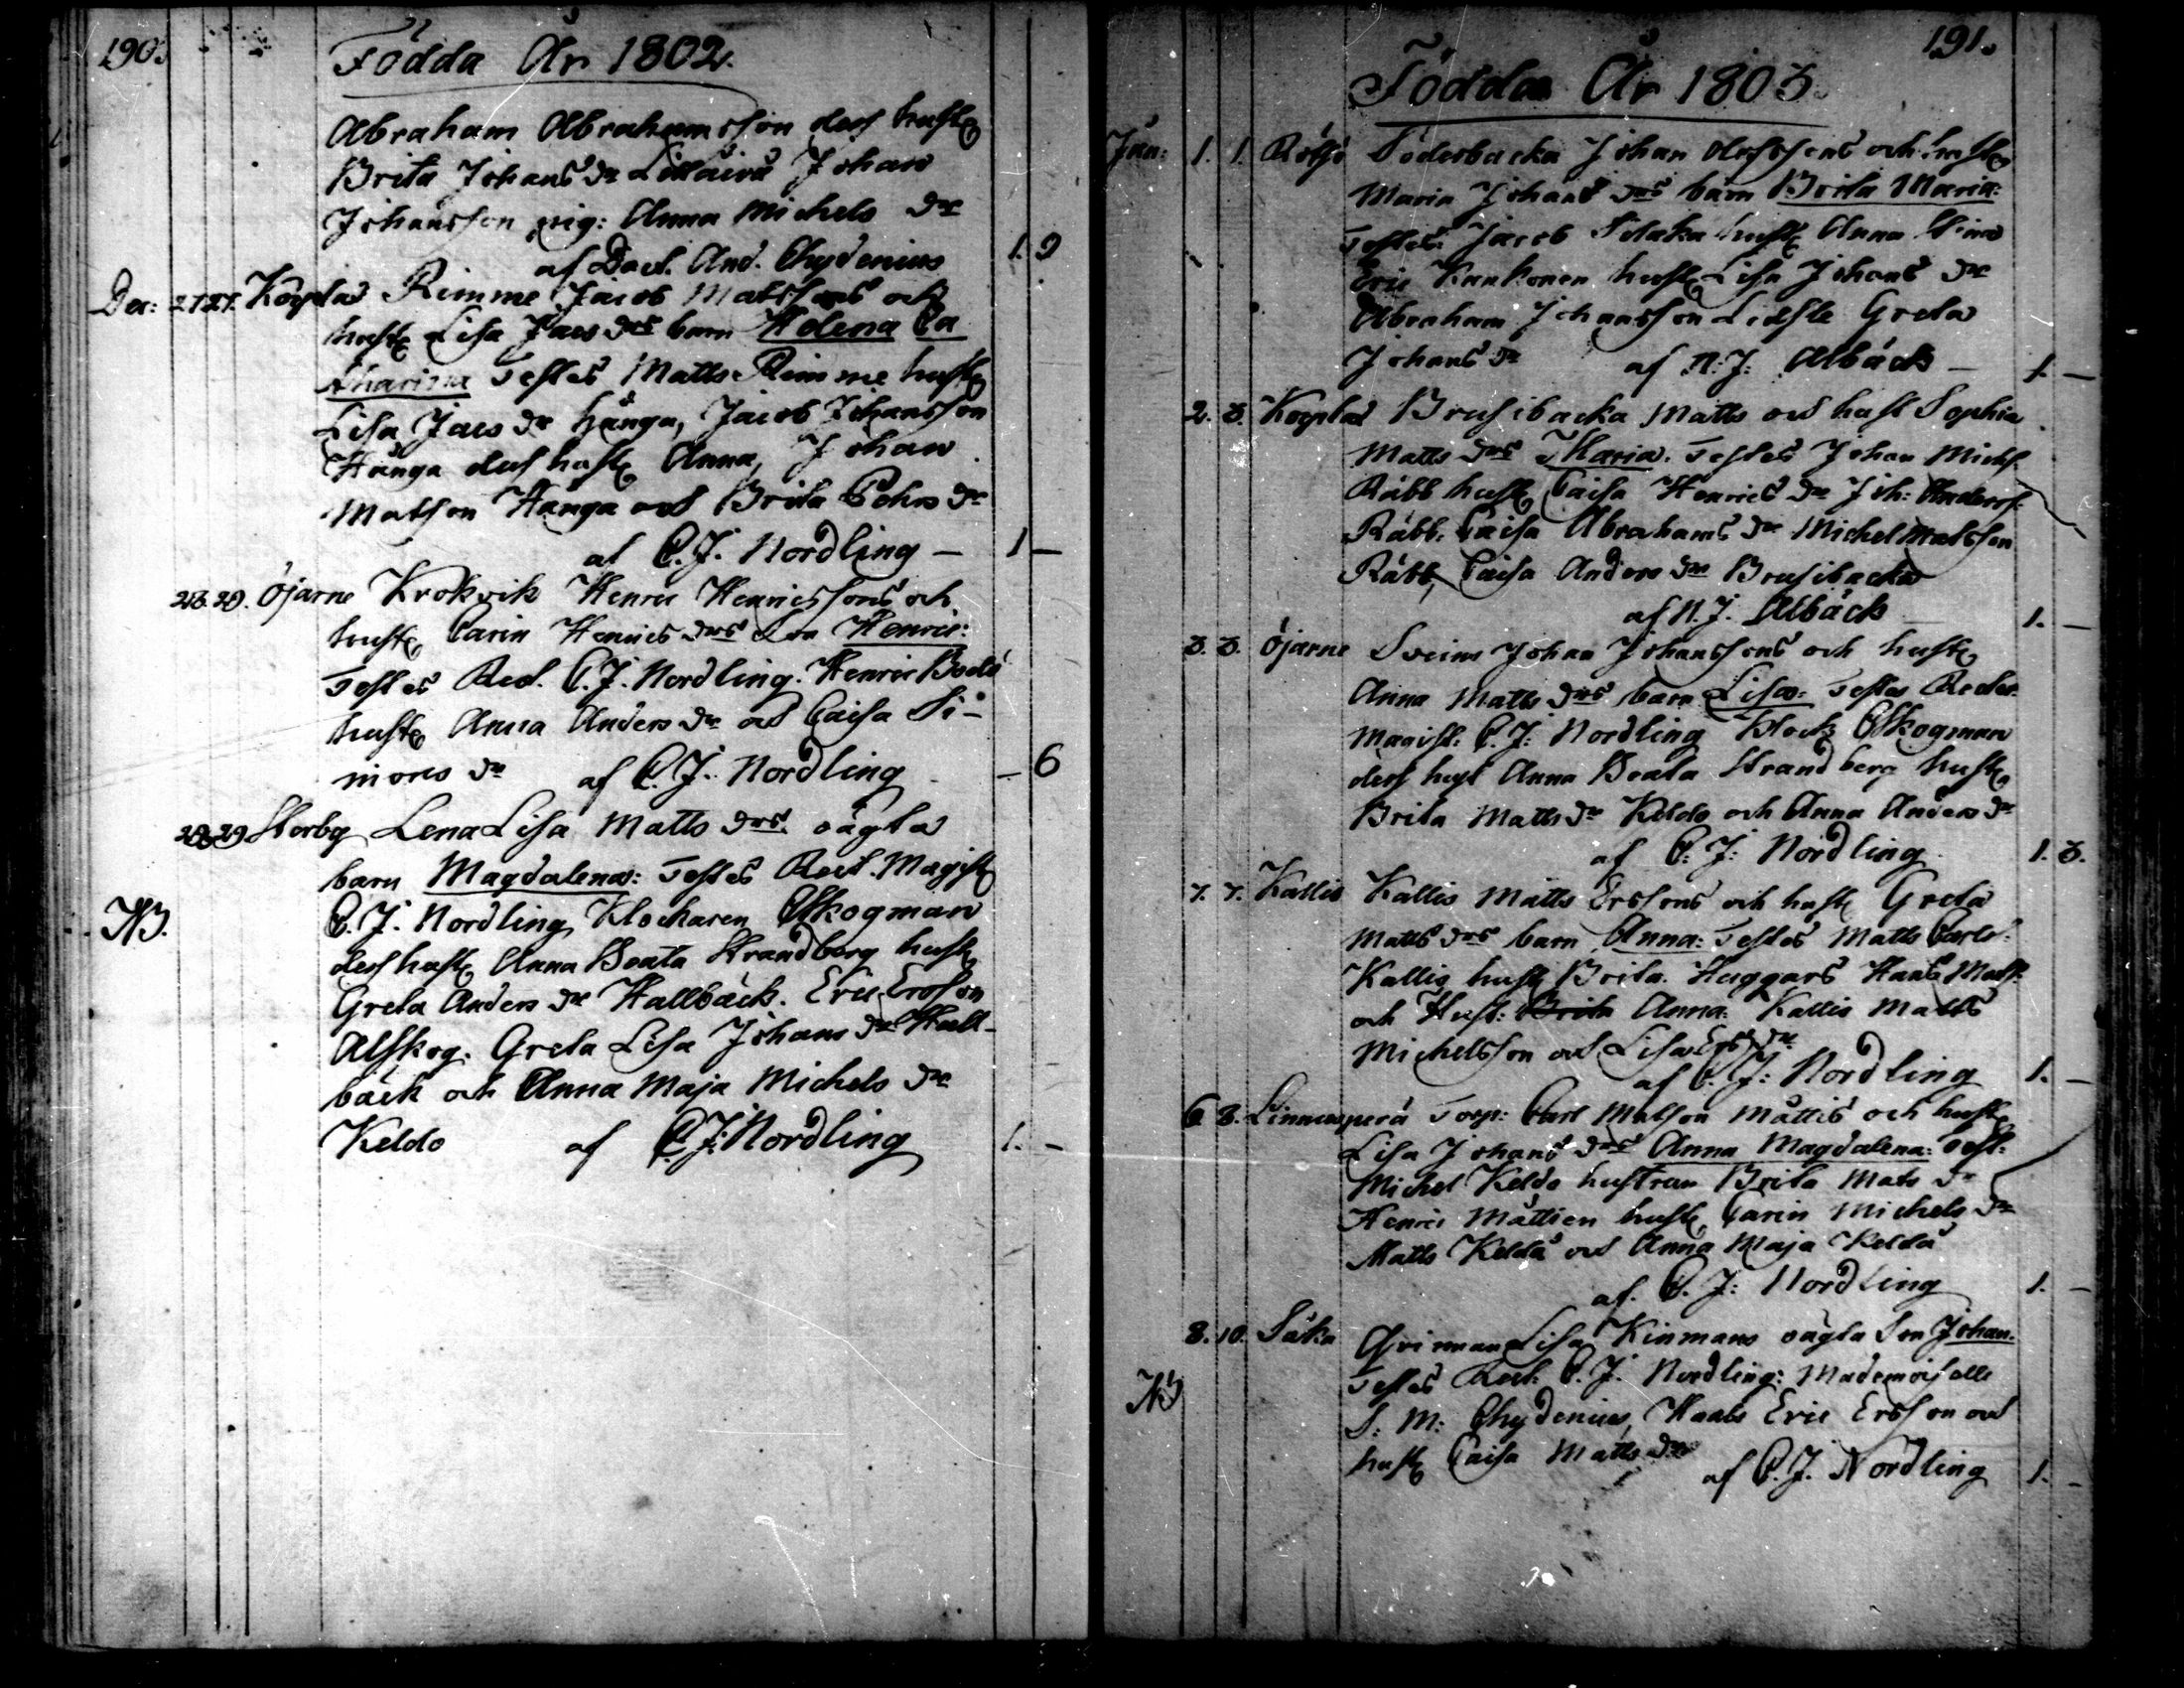 190.
Födda År 1802.
Abraham Abrahamsson dess hust:
Brita Johans dr Johan
Johansson pig: Anna Michels dr
af Doct. And. Chydenius 1. 9
Dec: 27 27. Korplax Rimme Jacob Matssons och
hust: Lisa Jacs drs barn Helena Ca
tharina Testes Matts Rimme hust:
Lisa Jacs dr Hänga, Jacob Johansson
Hänga dess hust: Anna, Johan
Matson Hänga och Brita Pehrs dr
af C. J. Nordling – 1 –
28. 29. Öjarne Krokvik Henric Henricssons och
hust: Carin Henrics drs son Henric:
Testes Rect. C. J. Nordling. Henric Bodö
hust: Anna Anders dr och Caisa Si-
mons dr af C. J. Nordling – 6
28 29. Storby Lena Lisa Matts drs oägta
barn Magdalena: Testes Rect. Magist:
NB. C. J. Nordling Klockaren Alskogman
dess hust: Anna Beata Strandberg hust:
Greta Anders dr Hallbäck. Eric Ersson
Alskog. Greta Lisa Johans dr Hall-
bäck och Anna Maja Michels dr
Keldo af C. J: Nordling 1. –
191.
Födda År 1803.
Jan: 1. 1. Rölsö Söderbacka Johan och hust:
Maria Johans drs barn Brita Maria:
Testes: Jacob hust: Anna
Eric Kankonen hust: Lisa Johans dr
Abraham Johansson Greta
Johans dr af N. J: Albäck – 1. –
2. 3. Korplax Brusibacka Matts och hust Sophia
Matts drs Maria. Testes Johan Michs.
Räbb hust: Caisa Henrics dr Joh: Anderss.
Räbb. Caisa Abrahams dr Michel Matsson
Räbb, Caisa Anders dr Brusibacka
af N. J. Albäck 1. –
3. 3. Öjarne Sveins Johan Johanssons och hust:
Anna Matts drs barn Lisa: Testes Rector
Magist: C. J: Nordling Klock: Alskogman
dess hust Anna Beata Strandberg hust:
Brita Matts dr Keldo och Anna Anders dr
af C: J: Nordling 1. 3.
7. 7. Kallis Kallis Matts Erssons och hust: Greta
Matts drs barn Anna: Testes Matts Carls:
Kallis hust: Brita. Huggars Hans Mats:
och Hust: Brita Anna: Kallis Matts
Michelsson och Lisa Ers dr
af C. J: Nordling 1. –
6 8. Linnusperä Torp: Carl Matson Mättis och hust:
Lisa Johans drs Anna Magdalena: Test:
Michel Keldo hustrun Brita Mats dr
Henric Mättien hust: Carin Michels dr
Matts Keldo och Anna Maja Keldo
af. C. J: Nordling 1. –
8. 10. Säka Lisa Kinmans oägta Son Johan.
Testes Rect: C. J. Nordling: Mademoiselle
NB S: M: Chydenius, Haals Eric Ersson och
hust: Caisa Matts dr
af C. J. Nordling 1. –